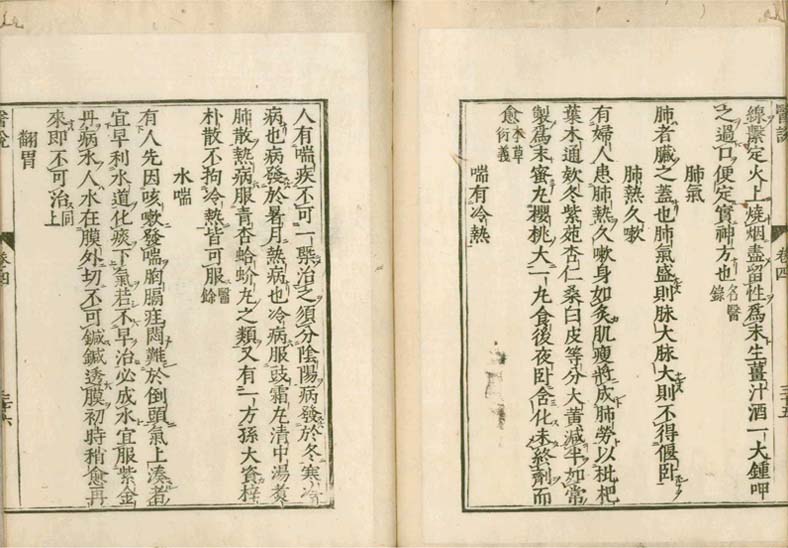 醫說
卷四
三十五
線繫定火上燒烟盡留性爲末生薑汁酒一大鍾呷
之過口便定實神方也名醫錄
肺氣
肺者臟之蓋也肺氣盛則脉大脉大則不得偃卧
肺熱久嗽
有婦人患肺熱久嗽身如炙肌瘦將成肺勞以枇杷
葉木通欵冬紫菀杏仁桑白皮等分大黃減半如常
製爲末蜜丸櫻桃大一丸食後夜卧含化未終劑而
愈本草衍義
喘有冷熱
人有喘疾不可一槩治之須分陰陽病發於冬寒冷
病也病發於暑月熱病也冷病服豉霜丸清中湯煑
肺散熱病服青杏蛤蚧丸之類又有一方孫大資梓
朴散不狥冷熱皆可服醫餘
水喘
有人先因咳嗽發喘胸膈疰悶難於倒頭氣上湊者
宜早利水道化痰下氣若不早治必成水宜服紫金
丹病水人水在膜外切不可鍼鍼透膜初時稍愈再
來即不可治同上
翻胃
醫說
卷四
三十六